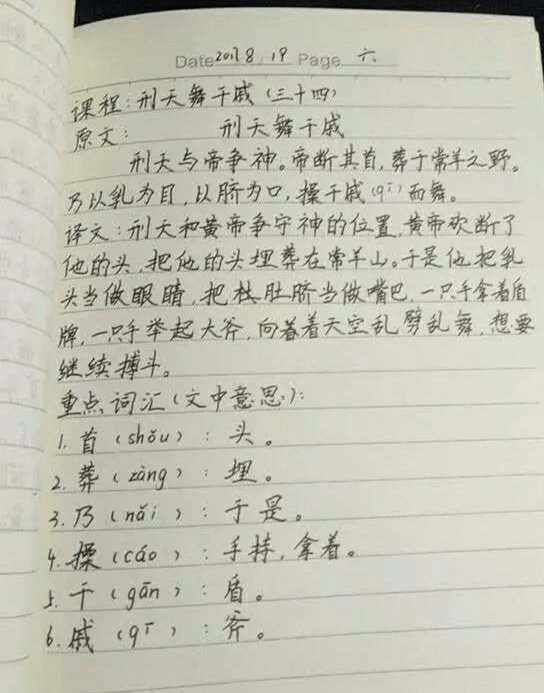 Date 2017.8.19 Page 六
课程:刑天舞干戚(三十四)
原文: 刑天舞干戚
刑天与帝争神。帝断其首,葬于常羊之野。
乃以乳为目,以脐为口,操干戚(qī)而舞。
译文:刑天和黄帝争守神的位置,黄帝砍断了
他的头,把他的头埋葬在常羊山。于是他把乳
头当做眼睛,把肚肚脐当做嘴巴,一只手拿着盾
牌,一只手举起大斧,向着着天空乱劈乱舞,想要
继续搏斗。
重点词汇(文中意思):
1.首(shǒu):头。
2.葬(zàng):埋。
3.乃(nǎi):于是。
4.操(cáo):手持,拿着。
5.干(gān):盾。
6.戚(qī):斧。